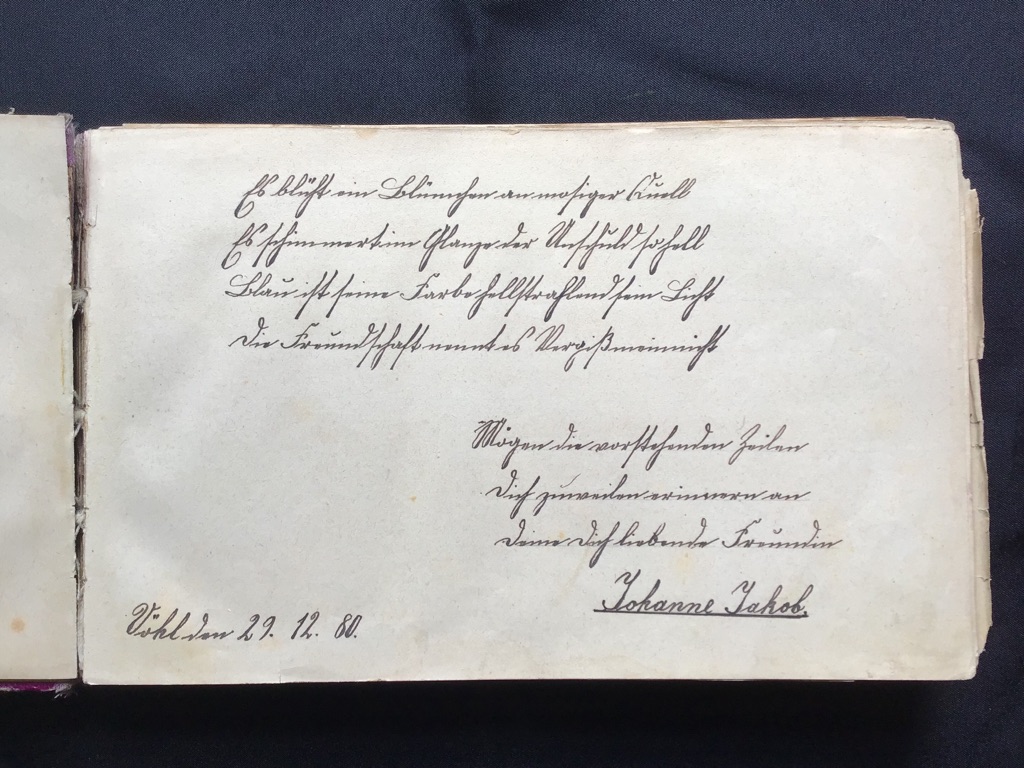 Es blüht ein Blümchen an mosiger Quell
Es schimmert im Glanze der Unschuld so hell
Blau ist seine Farbe hellstrahlend sein Licht
Die Freundschaft nennt es Vergißmeinnicht
Mögen die vorstehenden Zeilen
Dich zuweilen erinnern an
Deine Dich liebende Freundin
Johanne Jakob.
Vöhl den 29. 12. 80.